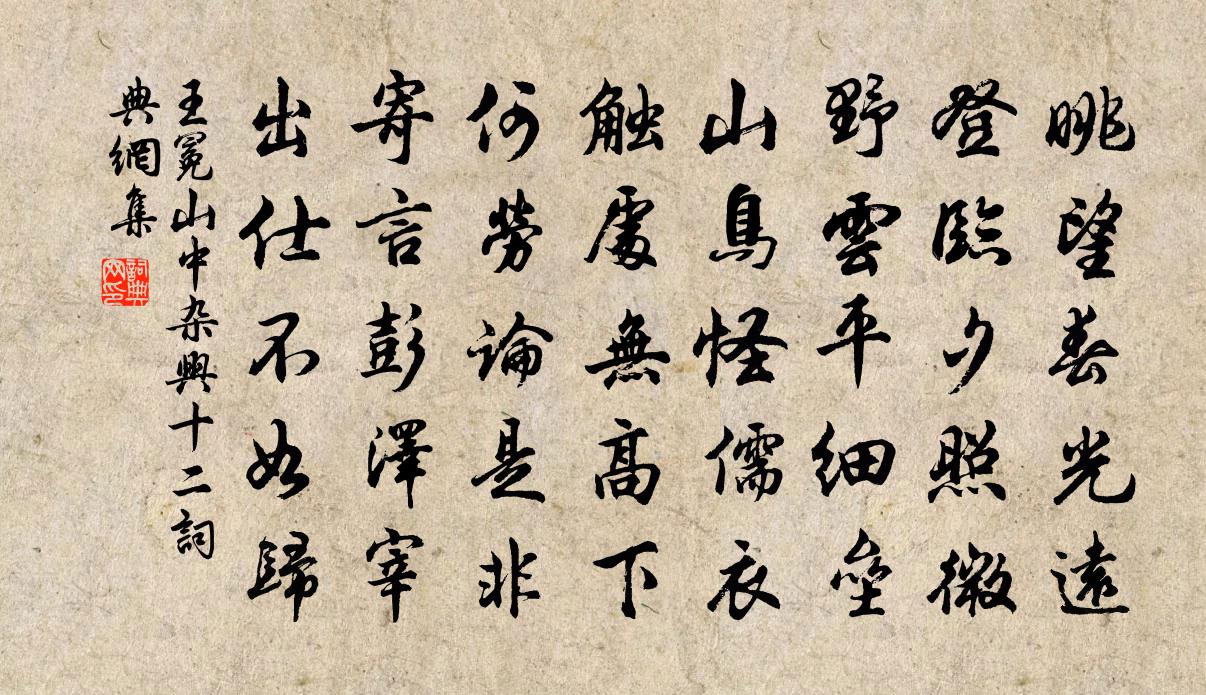 眺望春光遠
登臨夕照微
野雲平細壘
山鳥怪儒衣
触處無高下
何勞論是非
寄言彭澤宰
出仕不如歸
王冕山中杂興十二詞
典網集
詞典
网印